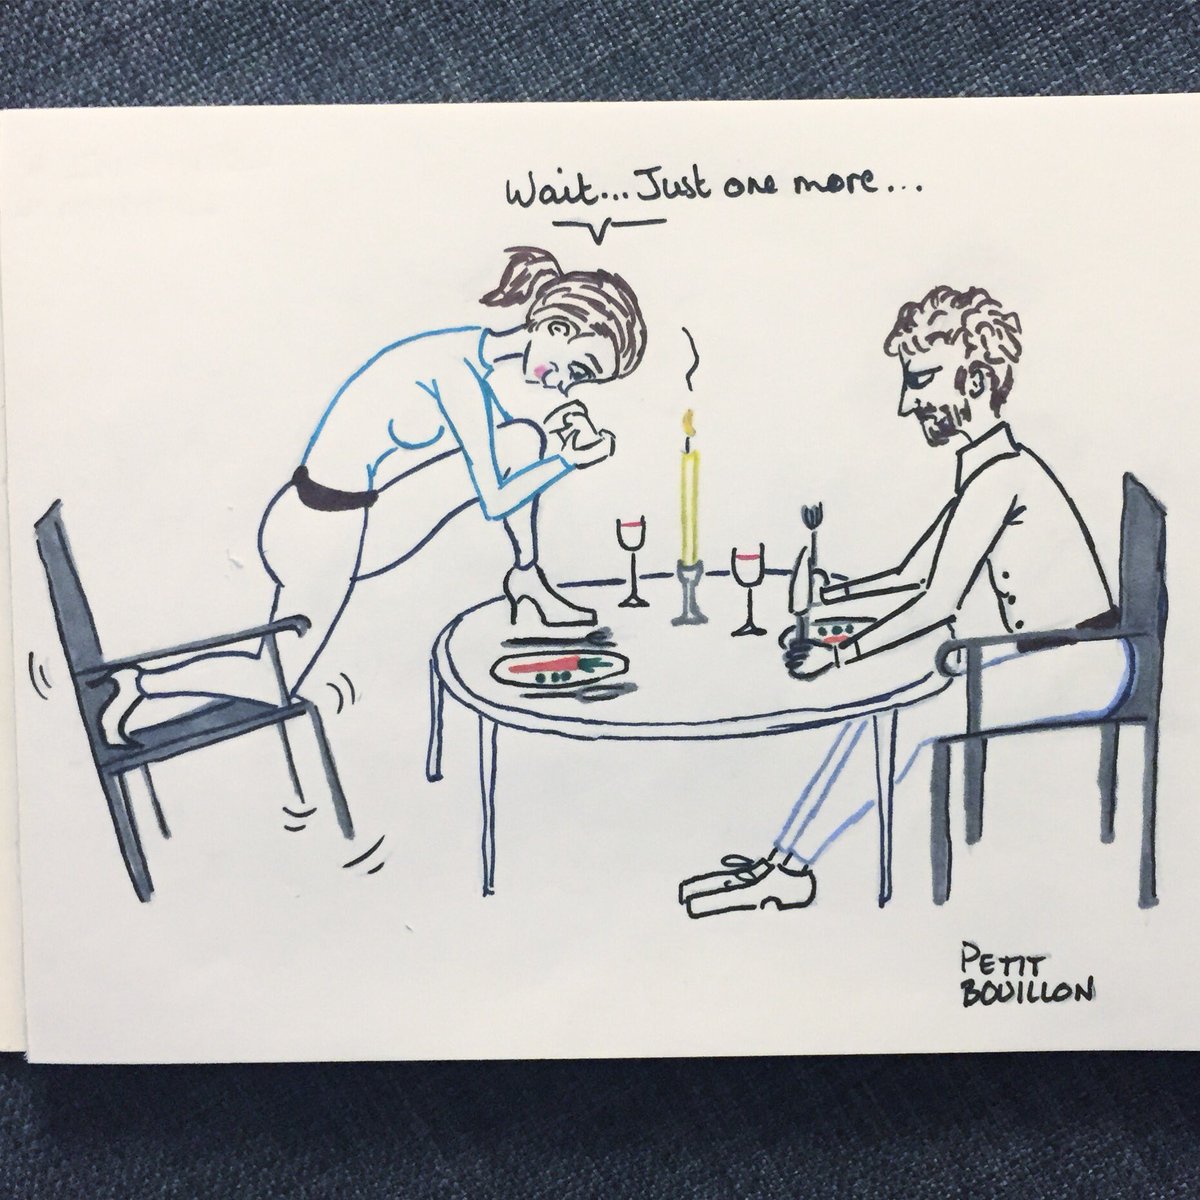 Wait... Just one more...
PETIT
BOUILLON